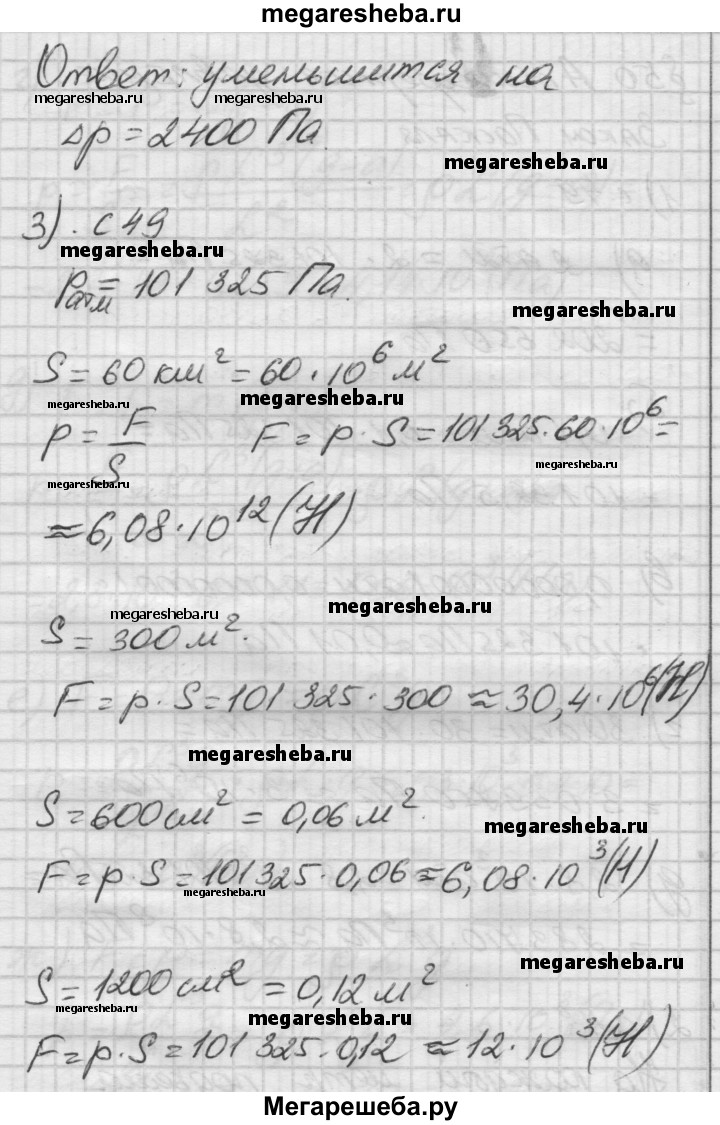 megaresheba.ru
Ответ: уменьшится на
megaresheba.ru megaresheba.ru
Δp = 2400 Па.
megaresheba.ru
3). с 49
megaresheba.ru
Pатм = 101 325 Па.
megaresheba.ru
S = 60 км² = 60 · 10⁶ м²
megaresheba.ru
P = F/S F = p · S = 101 325 · 60 · 10⁶ =
megaresheba.ru
megaresheba.ru
≈ 6,08 · 10¹² (Н)
megaresheba.ru
megaresheba.ru
S = 300 м².
F = p · S = 101 325 · 300 ≈ 30,4 · 10⁶ (Н)
megaresheba.ru
S = 600 см² = 0,06 м².
megaresheba.ru
F = p · S = 101 325 · 0,06 ≈ 6,08 · 10³ (Н)
megaresheba.ru
megaresheba.ru
S = 1200 см² = 0,12 м²
megaresheba.ru
megaresheba.ru
F = p · S = 101 325 · 0,12 ≈ 12 · 10³ (Н)
Мегарешеба.ру